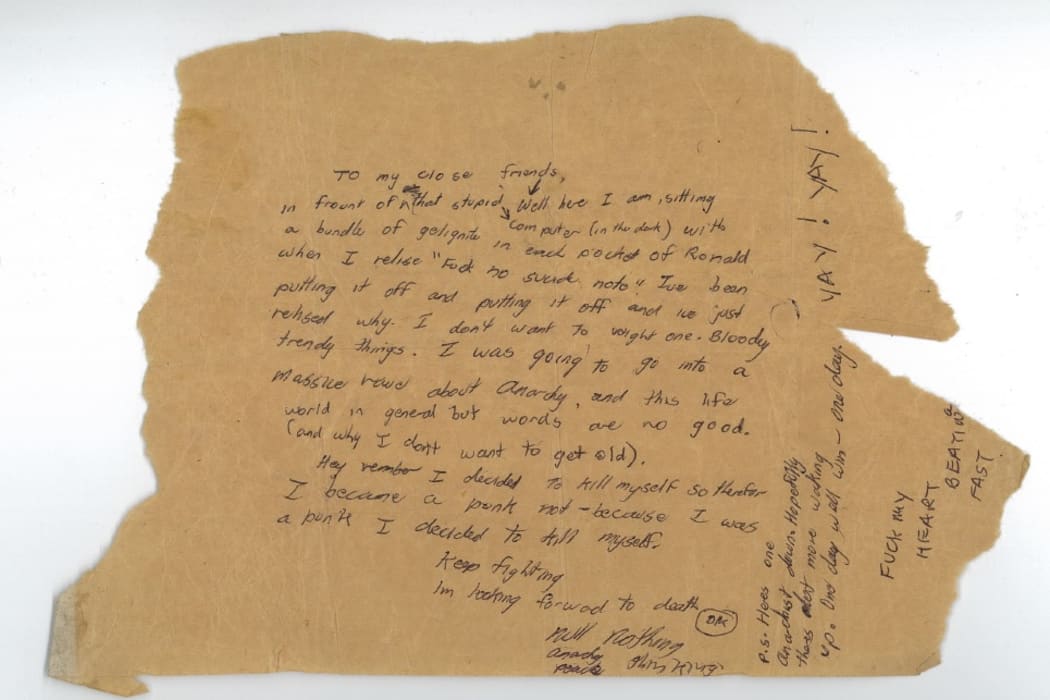 To my close friends,
in frount of that stupid, Well here I am, sitting
a bundle of gelignite computer (in the dark) with
in each pocket of Ronald
when I relise "Fuck no suicide note" Ive been
putting it off and putting it off and ive just
relised why. I don't want to wright one. Bloody
trendy things. I was going to go into a
massive rave about Anarchy, and this life
world in general but words are no good.
(and why I don't want to get old).
Hey rember I decided to kill myself so therfor
I became a punk not - because I was
a punk I decided to kill myself.
Keep fighting
Im looking forwad to death
null nothing
anarchy
peace thinking
P.S. Heres one
Anarchist down. Hopefully
theres alot more waking
up. One day we'll win - one day.
YAY! YAY!
FUCK MY
HEART
BEATING
FAST